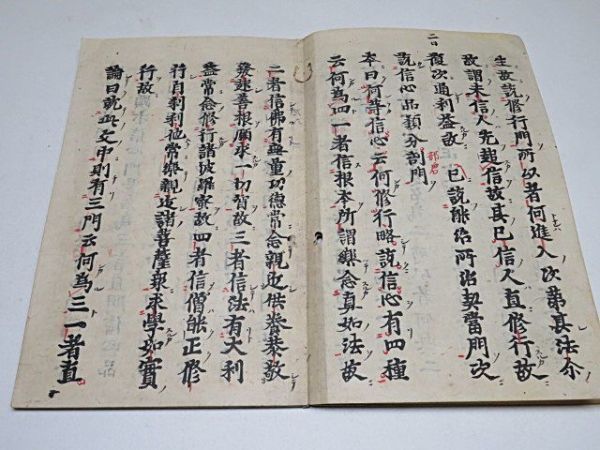 生故說修行門所以者何進入次第其法尒
故謂未信人先趣信故其已信人直修行故
復次通利益故 已說能治所治契當門次
說信心品類分剖門
本曰何等信心云何修行略說信心有四種
云何為四一者信根本所謂樂念真如法故
二者信佛有無量功德常念親近供養恭敬
發起善根願求一切智故三者信法有大利
益常念修行諸波羅蜜故四者信僧能正修
行自利利他常樂親近諸菩薩眾求學如實
行故
論曰就此文中則有三門云何為三一者直